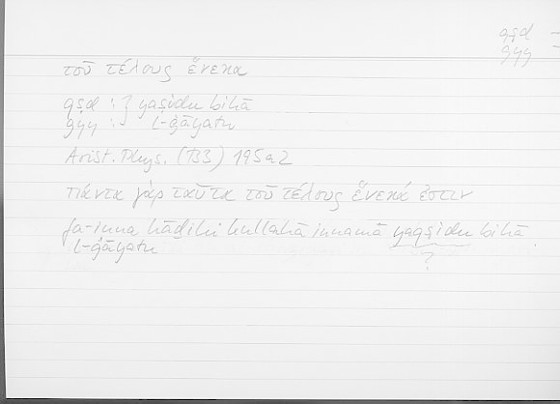 qṣd –
ġyy –
τοῦ τέλους ἕνεκα
qṣd : } yaṣidu bihā
ġyy : } l-ġāyatu
Arist. Phys. (B3) 195a2
πάντα γὰρ ταῦτα τοῦ τέλους ἕνεκά ἐστιν
fa-inna hāḏihi kullahā innamā yaqṣidu bihā
l-ġāyatu
?